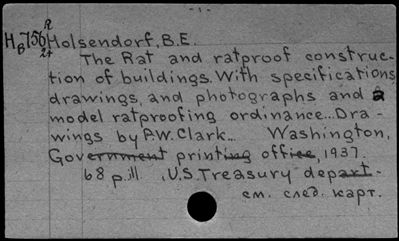 - 1 -
R
HB 756 Holsendorf, B.E.
2+
The Rat and ratproof construc-
tion of buildings. With specifications,
drawings, and photographs and a
model ratproofing ordinance... Dra-
wings by P.W. Clark... Washington,
Government printing office, 1937.
68 p. ill. U.S. Treasury depart.
см. след. карт.